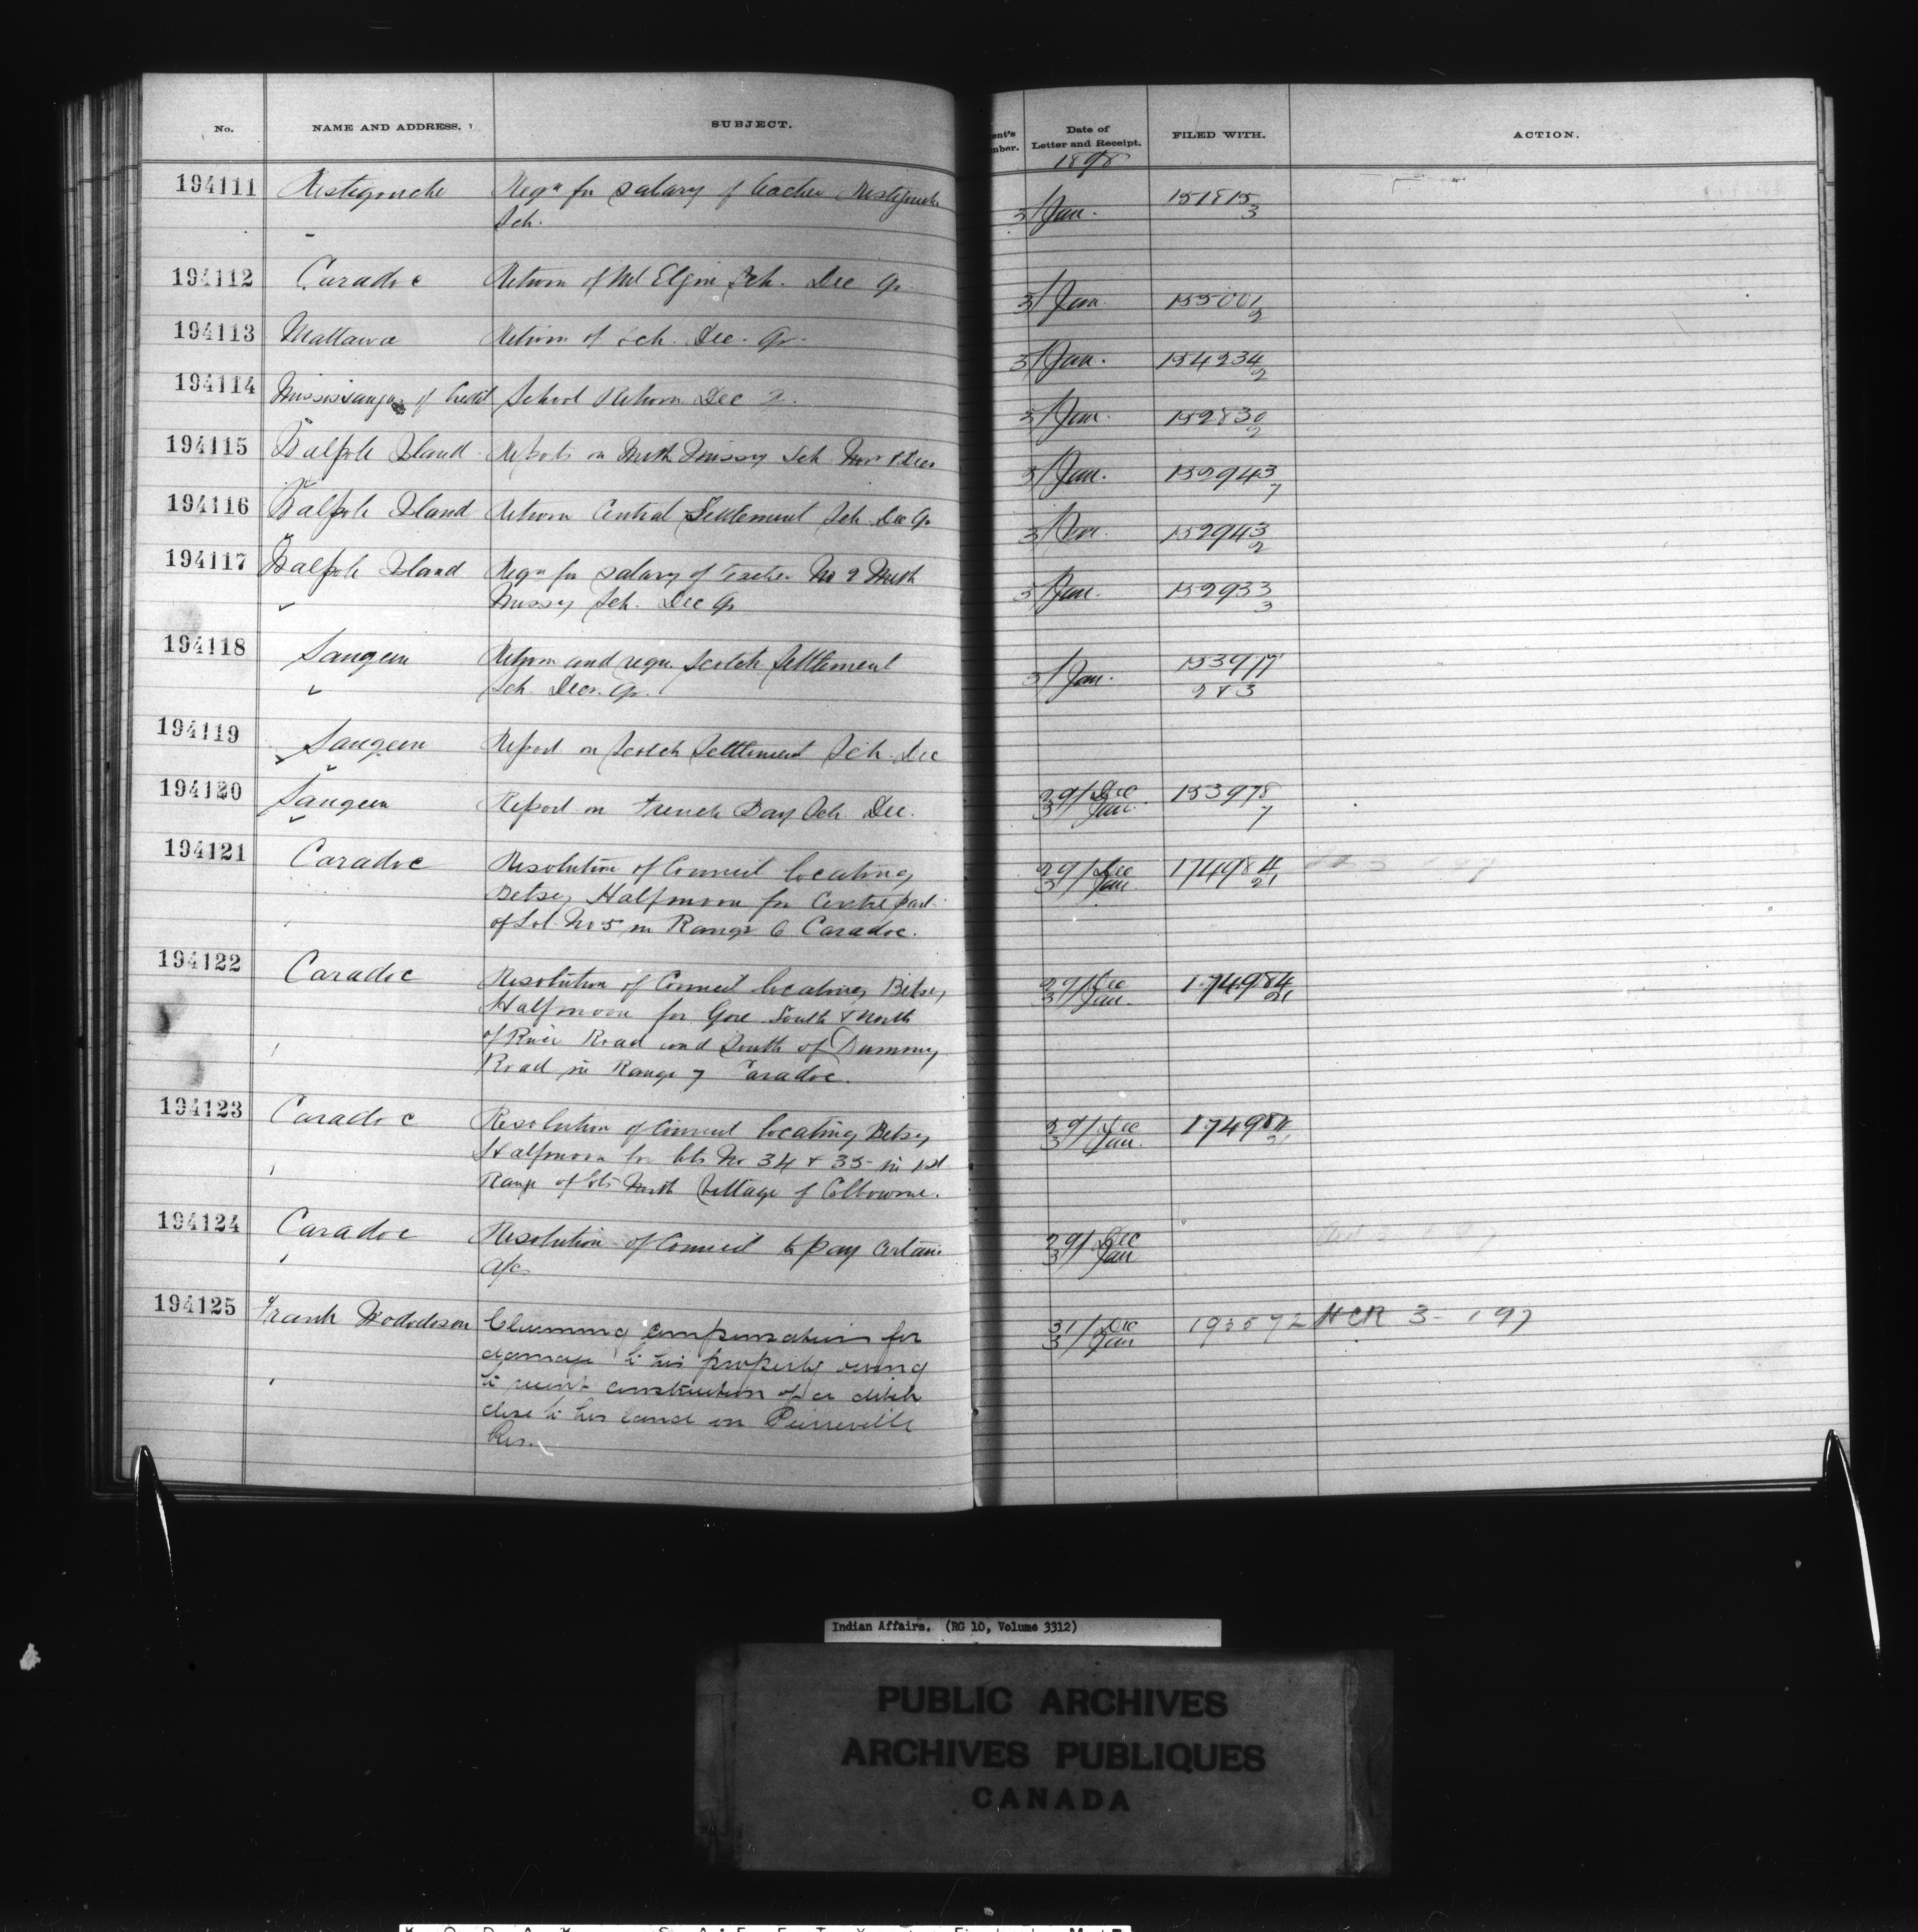 No. NAME AND ADDRESS. SUBJECT. ent's mber. Date of Letter and Receipt. FILED WITH. ACTION.
1898
194111 Restigouche Reqn for salary of teacher Restigouche 3/Jan. 151815
Sch. 3
194112 Caradoc Return of Mt Elgin Sch. Dec Qr 3/Jan. 155001
2
194113 Mattawa Return of Sch. Dec. Qr. 3/Jan. 154234
2
194114 Mississaugas of Credit School Return Dec Q. 3/Jan. 152830
2
194115 Walpole Island Reports on Meth Missy Sch Nov & Decr 3/Jan. 152943
7
194116 Walpole Island Return Central Settlement Sch Dec Qr 3/Jan. 152943
2
194117 Walpole Island Reqn for salary of Teacher No 2 Meth 3/Jan. 152933
Missy Sch. Dec Qr 3
194118 Saugeen Return and reqn. Scotch Settlement 3/Jan. 153977
Sch. Decr. Qr. 2 & 3
194119 Saugeen Report on Scotch Settlement Sch. Dec
194120 Saugeen Report on French Bay Sch Dec. 29/Dec 153978
3/Jan. 7
194121 Caradoc Resolution of Council locating 29/Dec 174984
Betsey Halfmoon for Centre part 3/Jan. 21
of Lot No 5 in Range 6 Caradoc.
194122 Caradoc Resolution of Council locating Betsey 29/Dec 174984
Halfmoon for Gore South & North 3/Jan. 21
of River Road and South of Dummy
Road in Range 7 Caradoc.
194123 Caradoc Resolution of Council locating Betsey 29/Dec 174984
Halfmoon for lots No 34 & 35 in 1st 3/Jan. 21
Range of lots North Village of Colbourne.
194124 Caradoc Resolution of Council to pay certain 29/Dec
a/c 3/Jan
194125 Frank Claiming compensation for 31/Dec 193572 HCR 3- 197
damage to his property owing 3/Jan
to recent construction of a ditch
close to his land on Pierreville
Res.
Indian Affairs. (RG 10, Volume 3312)
PUBLIC ARCHIVES
ARCHIVES PUBLIQUES
CANADA